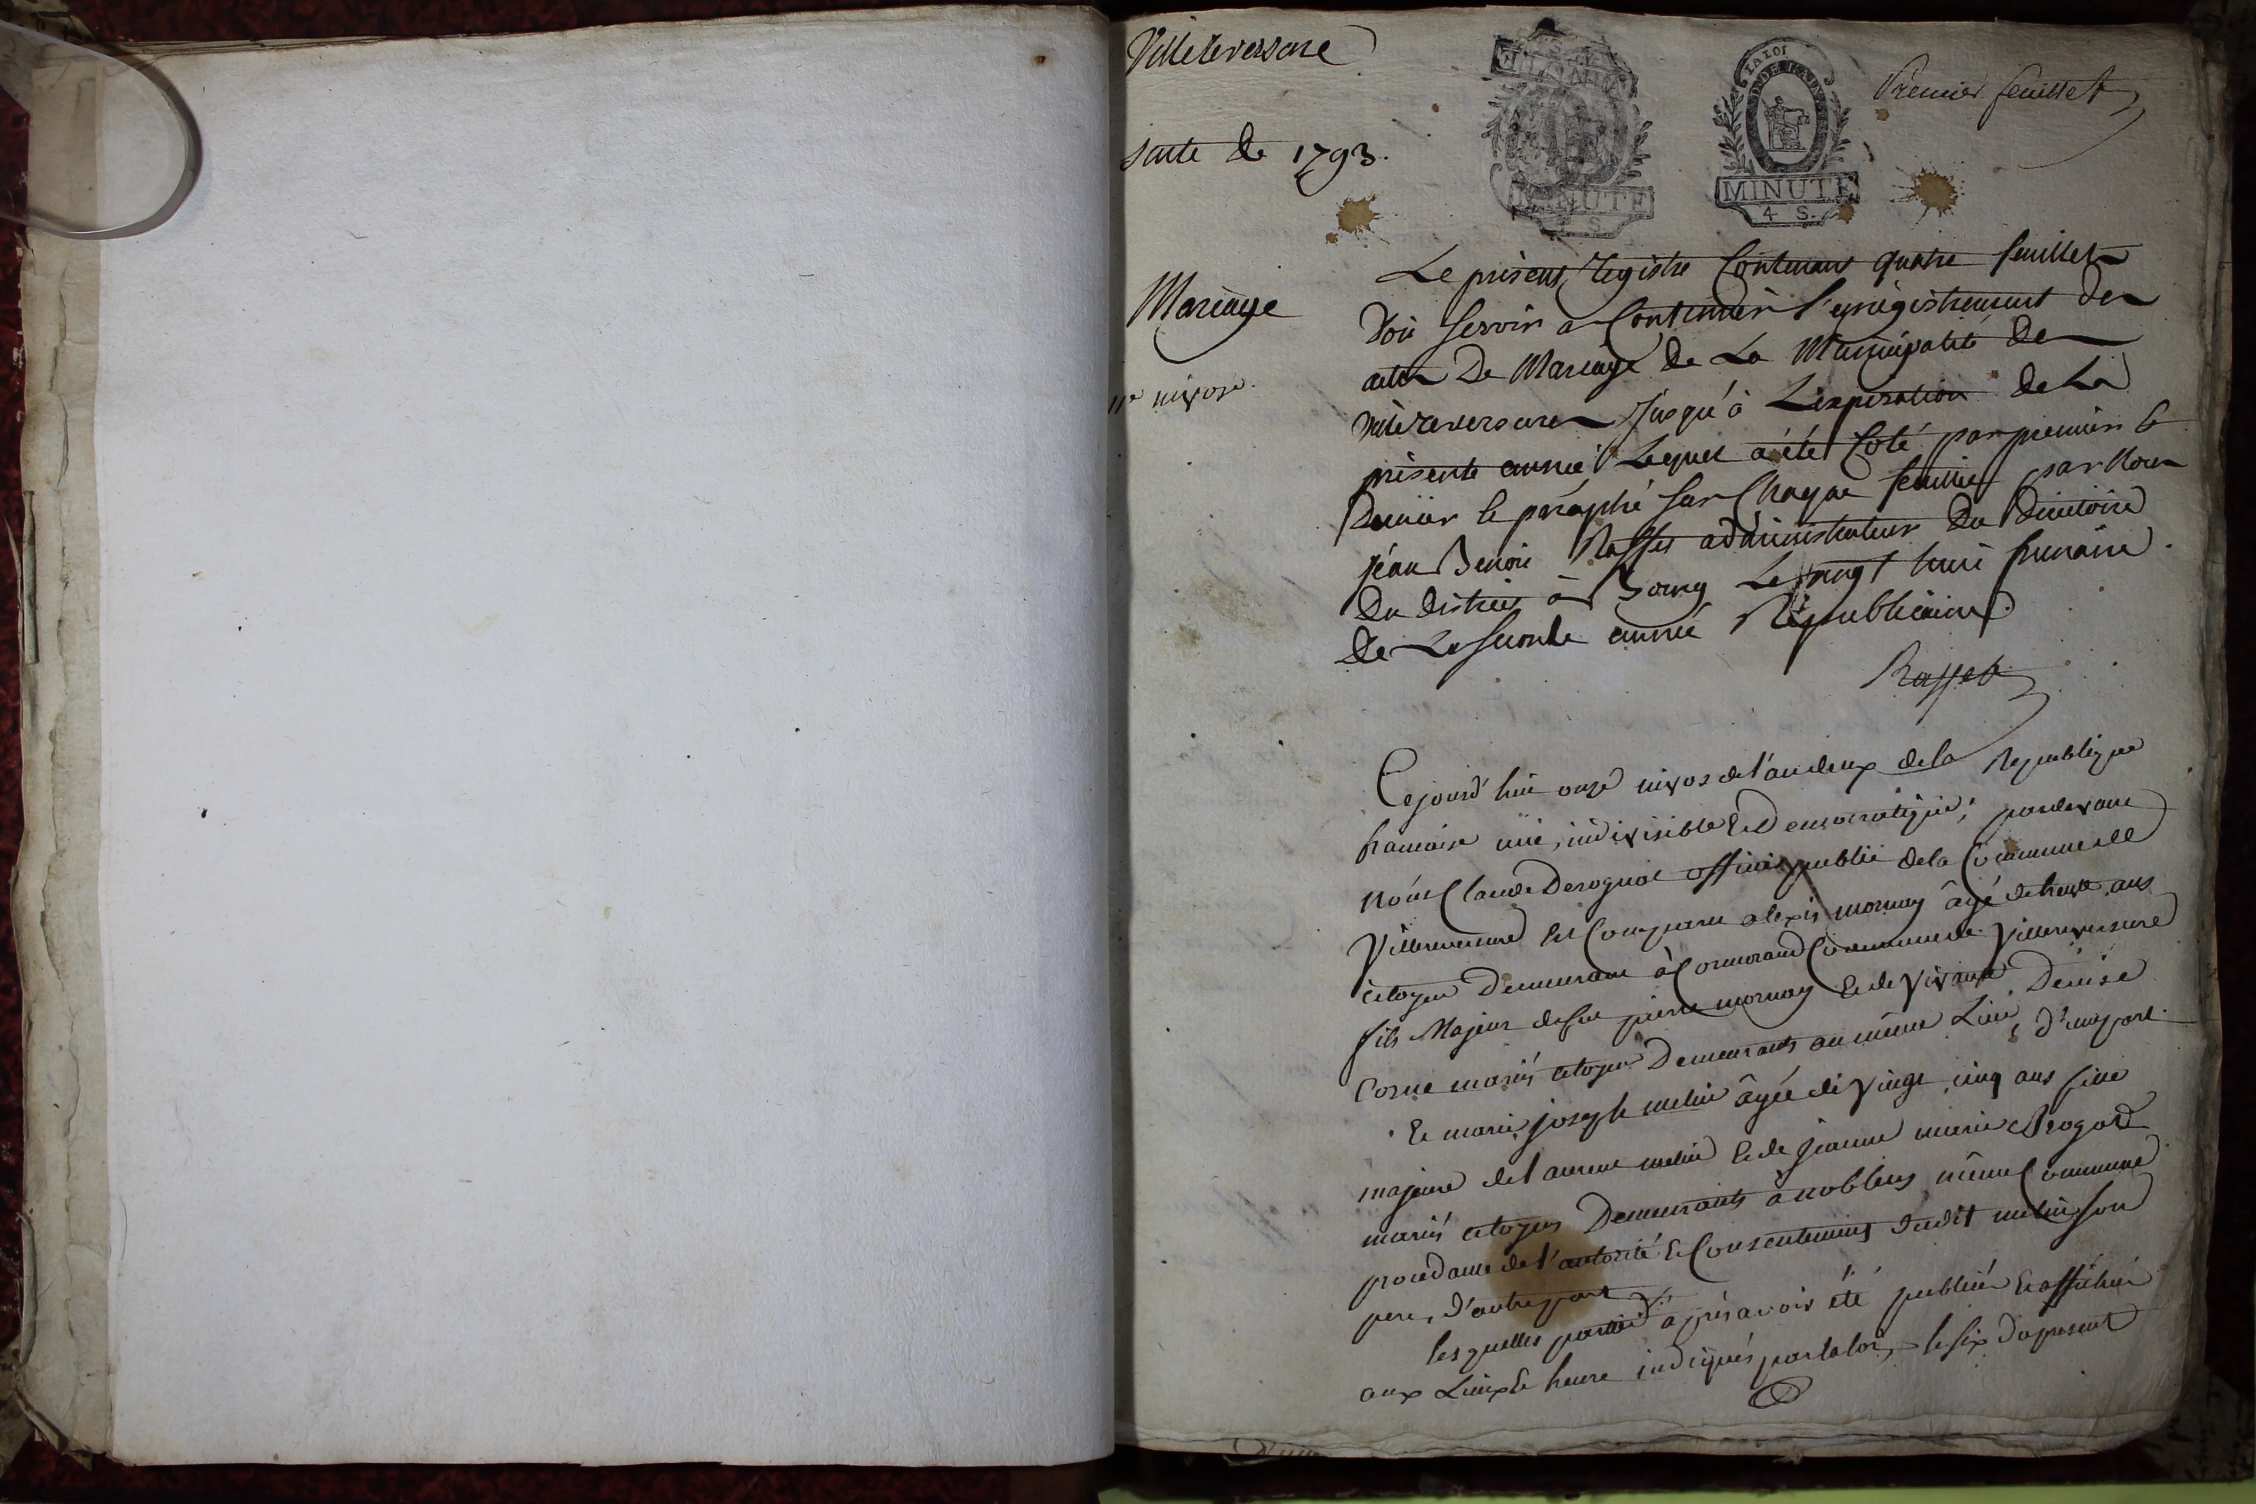 Villereversure
suitte de 1793.
Premier feuillet
LA LOI
MINUTE
4 S.
MINUTE
Mariage
11e nivose.
Le présent Registre Contenant quatre feuillets
Doit servir a Continuer l'enregistrement des
actes De Mariage de La Municipalité de
villereversure Jusqu'à L'expiration de La
présente année Lequel a été Coté par premier &
Dernier & paraphé sur Chaque feuillet par Nous
jéan Benoit Rasset administrateur Du Directoire
Du district à Bourg Le vingt huit frimaire
De La seconde année Républicaine.
Rasset
Cejourd'hui onze nivos de l'an deux de la Republique
francaise une, indivisible Et Democratique; pardevant
Nous Claude Derognat officier public de la Commune de
Villereversure Est Comparu alexis mornay âgé de trente ans
citoyen Demeurant à Cormorand Commune de Villereversure
fils Majeur de feu pierre mornay Et de Vivante Dénise
Corne mariés citoyens Demeurants au même Lieu, d'une part.
Et marie joseph melin âgée de Vingt cinq ans fille
majeure de Laurent melin Et de jeanne marie Brogat
mariés citoyens Demeurants à nobleus même Commune
procédante de l'autorité & Consentement dudit melin son
pere, d'autre part
les quelles parties après avoir été publiés Et affichés
aux Lieux & heure indiqués par la loi, le six du present